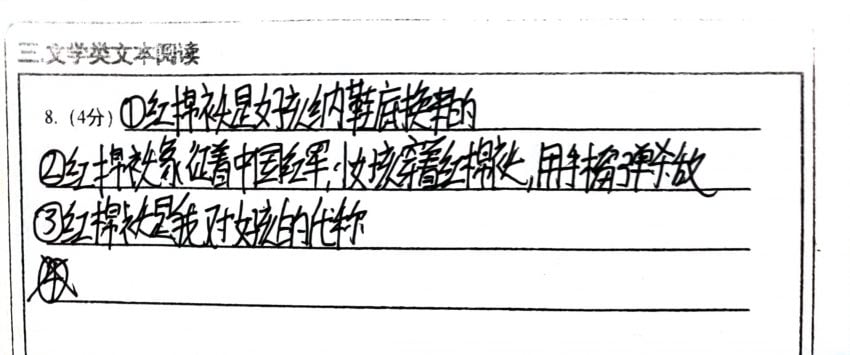 三.文学类文本阅读
8. (4分) ①红棉袄是女孩纳鞋底换来的
②红棉袄象征着中国红军,女孩穿着红棉袄,用手榴弹杀敌
③红棉袄是我对女孩的代称